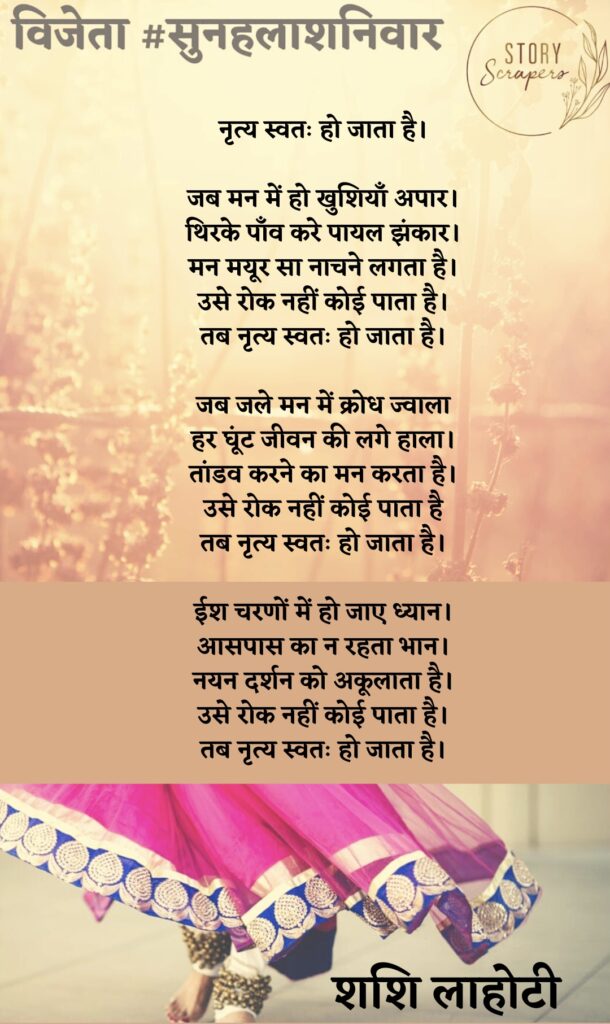 विजेता #सुनहलाशनिवार
STORY
Scrapers
नृत्य स्वतः हो जाता है।
जब मन में हो खुशियाँ अपार।
थिरके पाँव करे पायल झंकार।
मन मयूर सा नाचने लगता है।
उसे रोक नहीं कोई पाता है।
तब नृत्य स्वतः हो जाता है।
जब जले मन में क्रोध ज्वाला
हर घूंट जीवन की लगे हाला।
तांडव करने का मन करता है।
उसे रोक नहीं कोई पाता है
तब नृत्य स्वतः हो जाता है।
ईश चरणों में हो जाए ध्यान।
आसपास का न रहता भान।
नयन दर्शन को अकूलाता है।
उसे रोक नहीं कोई पाता है।
तब नृत्य स्वतः हो जाता है।
शशि लाहोटी